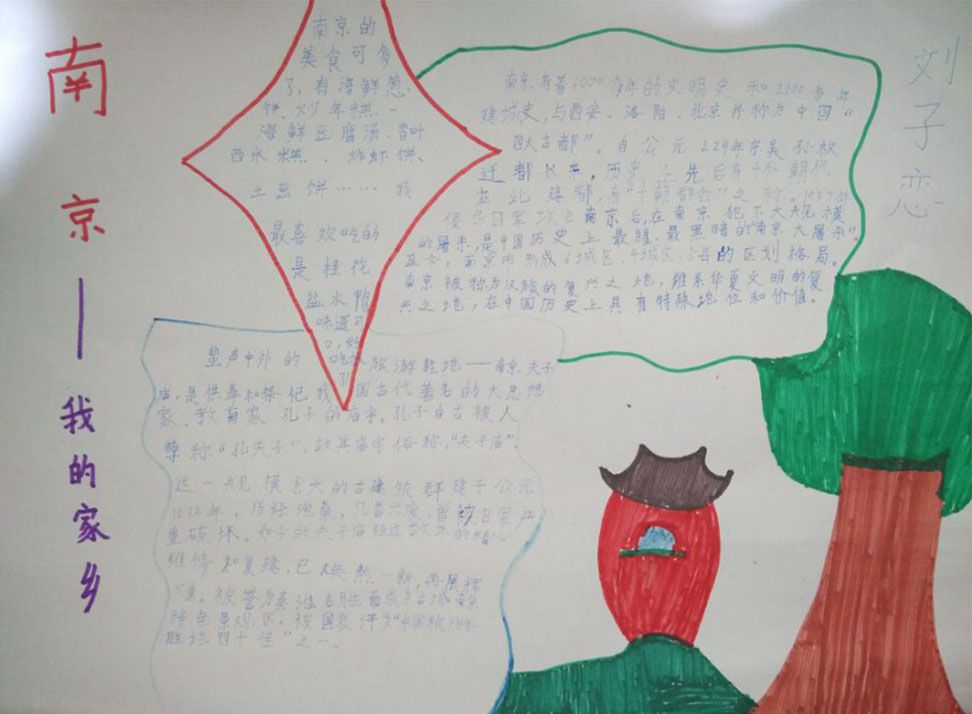 南京——我的家乡
南京的
美食可多
了，有海鲜葱
饼、炒年糕、
海鲜豆腐汤、香叶
西米糕、炸虾饼、
土豆饼……我
最喜欢吃的
是桂花
盐水鸭
味道可
口，好
吃
南京有着6000多年的文明史和2500多年
建城史，与西安、洛阳、北京并称为中国“
四大古都”。自公元229年东吴孙权
迁都以来，历史上先后有十个朝代
在此建都，有“十朝都会”之称。1937年
侵华日军攻占南京后，在南京犯下大规模
的屠杀，是中国历史上最黑暗的“南京大屠杀”。
至今，南京市形成6城区、4城区、5县的区划格局。
南京被称为汉族的复兴之地，维系华夏文明的复
兴之地，在中国历史上具有特殊地位和价值。
刘子恋
蜚声中外的旅游胜地——南京夫子
庙，是供奉和祭祀我国古代著名的大思想
家、教育家孔子的庙宇。孔子自古被人
尊称“孔夫子”，故其庙宇俗称，“夫子庙”。
这一规模宏大的古建筑群建于公元
1034年，历经沧桑，几番兴废，曾被日军严
重破坏。如今的夫子庙经过数年的精心
维修和复建，已焕然一新，再展辉
煌。被誉为秦淮名胜而成为古城南京
特色景观区，被国家评为“中国旅游
胜地四十佳”之一。